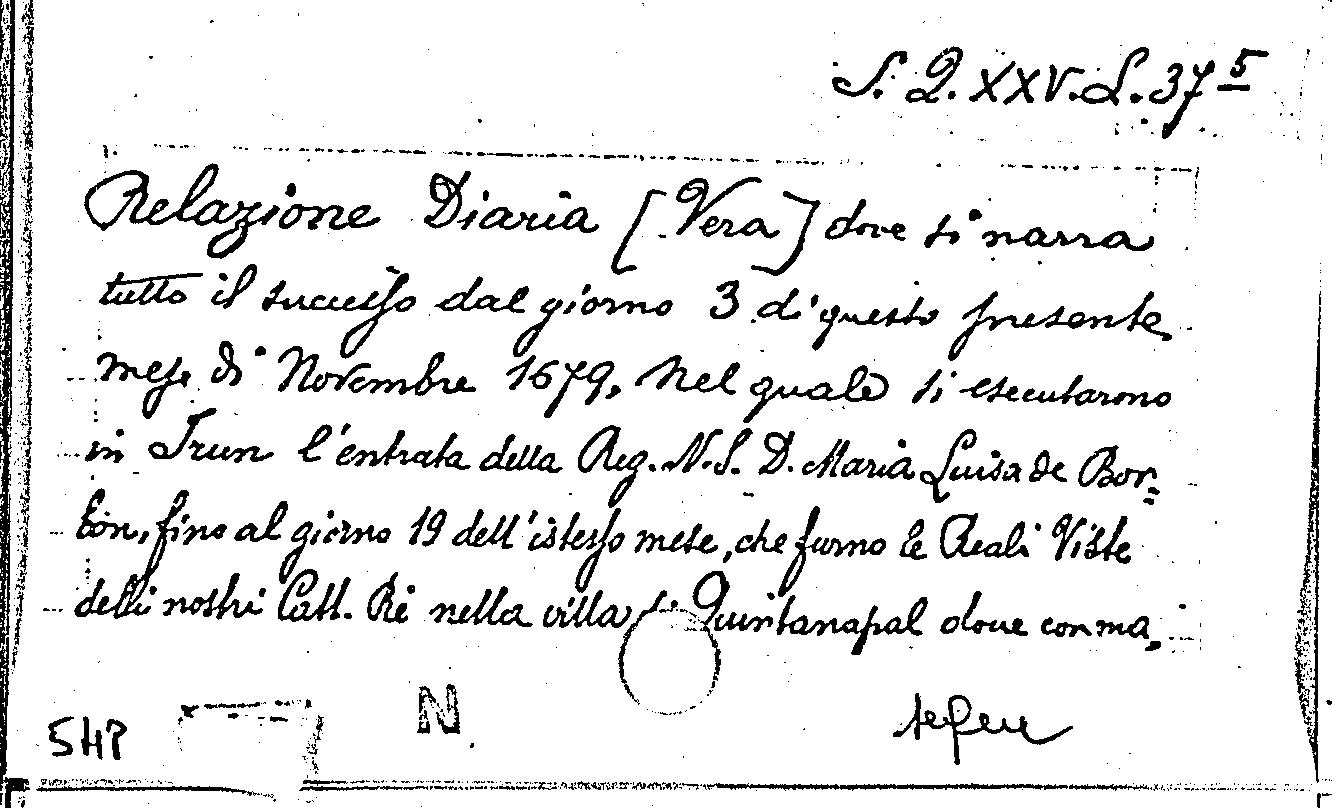 S. Q. XXV. L. 37 5
Relazione Diaria [Vera] dove si narra
tutto il successo dal giorno 3 di questo presente
mese di Novembre 1679, nel quale si esecutarono
in Irun l'entrata della Reg. N. S. D. Maria Luisa de Bor=
bon, fino al giorno 19 dell'istesso mese, che furno le Reali Viste
delli nostri Catt. Re nella villa di Quintanapal dove con ma,
segue
N